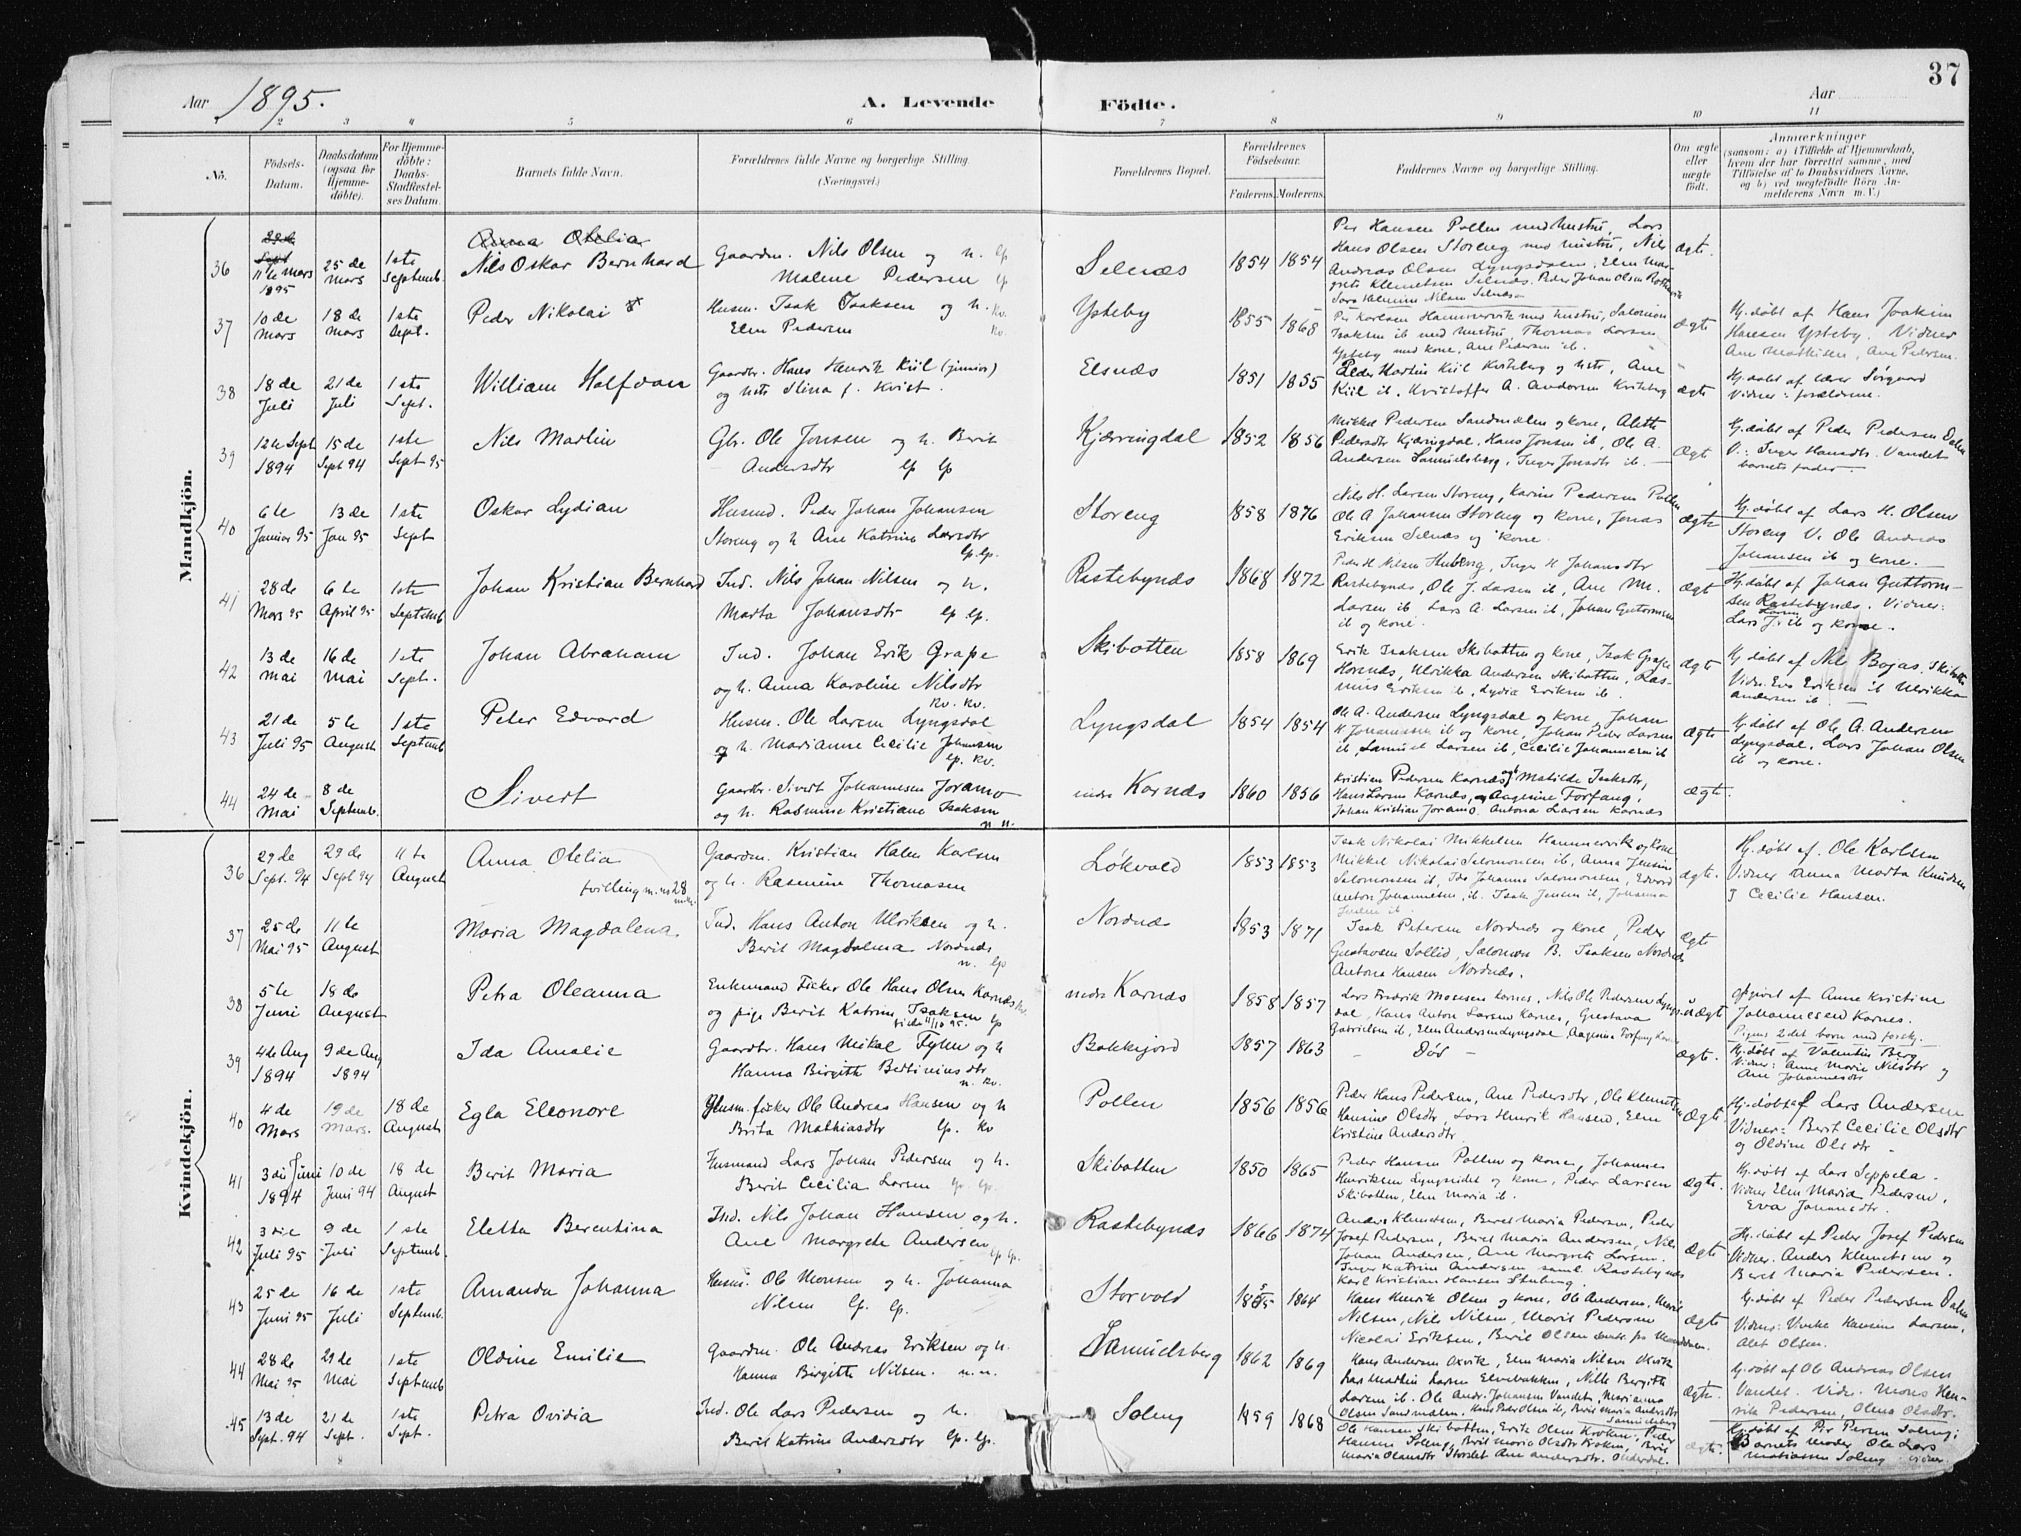 37
Aar 1895.
A. Levende Födte.
Aar
1 2 3 4 5 6 7 8 9 10 11
No.
Födsels-Datum.
Daabsdatum (ogsaa for Hjemme-döbte).
For Hjemme-döbte: Daabs-Stadfæstel-ses Datum.
Barnets fulde Navn.
Forældrenes fulde Navne og borgerlige Stilling.
(Næringsvei.)
Forældrenes Bopæl.
Forældrenes Födselsaar.
Faderens. Moderens.
Faddernes Navne og borgerlige Stilling.
Om ægte eller uægte födt.
Anmærkninger
(saasom: a) i Tilfælde af Hjemmedaab, hvem der har forrettet samme, med Tilföielse af to Daabsvidners Navne, og b) ved uægtefödte Börn An-melderens Navn m. V.)
Mandkjön.
Anna Otelia
36 11te Mars 1895 25de Mars 1ste Septemb. Nils Oskar Bernhard Gaardm. Nils Olsen og h. lp Malene Pedersen lp Selnæs 1854 1854 ægt.
Per Hansen Pollen med hustru, Lars
Hans Olsen Storeng med hustru, Nils
Andreas Olsen Lyngsdalen, Elen Mar-
grete Klemetsen Selnæs. Peder Johan Olsen
37 10de Mars 18de Mars 1ste Sept. Peder Nikolai Husm. Isak Isaksen og h. kv. Elen Pedersen kv. Ysteby 1855 1868 ægte
Per Karlsen Hammervik med hustru, Salomon
Isaksen ib med hustru, Thomas Larsen
Ysteby med kone, Ane Pedersen ib.
Hj. døbt af Hans Joakim
Hansen Ysteby. Vidner
Ane Mathisen, Ane Pedersen.
38 18de Juli 21de Juli 1ste Sept. William Halfdan Gaardbr. Hans Henrik Kiil (junior) og hts Stina f. Kvist. Elsnæs 1851 1855 ægte
Peder Martin Kiil Kvitberg og hts, Ane
Kiil ib, Kristoffer A. Andersen Kvitberg
Hj. døbt af lærer Sørgaard
Vidner: forældrene.
39 12te Sept 1894 15de Sept 94 1ste Sept 95 Nils Martin Gbr. Ole Jonsen og h. Berit Andersdtr lp lp Kjærringdal 1852 1856 Ægt
Mikkel Pedersen Sandmælen og kone, Alett
Pedersdtr Kjæringdal, Hans Jonsen ib, Ole A.
Andersen Samuelsberg, Inger Jonsdtr ib.
Hj. døbt af Peder Pedersen Dalen
V.: Inger Hansdtr. Vandet
barnets fader.
40 6te Januar 95 13de Jan 95 1ste Sept Oskar Lydian Husmd. Peder Johan Johansen Storeng og h Ane Katrine Larsdtr lp. lp. Storeng 1858 1876 Ægte
Nils H. Larsen Storeng, Karine Pedersen Pollen
Ole A Johansen Storeng og kone, Jonas
Eriksen Selnæs og kone.
Hj. døbt af Lars H. Olsen
Storeng V. Ole Andreas
Johansen ib og kone.
41 28de Mars 95 6te April 95 1ste Septemb Johan Kristian Bernhard Ind. Nils Johan Nilsen og h. Marta Johansdtr lp lp. Rastebynæs 1868 1872 ægt
Rastebynæs, Ole J. Larsen ib, Ane M.
Larsen ib Lars A. Larsen ib, Johan Guttormsen
ib og kone.
Hj. døbt af Johan Guttorm-
sen Rastebynæs. Vidner:
Lars J. ib og kone.
42 13de Mai 16de Mai 1ste Sept. Johan Abraham Ind. Johan Erik Grape og h. Anna Karoline Nilsdtr kv. kv. Skibotten 1858 1869 ægt
Erik Isaksen Skibotten og kone, Isak Grape
Horsnæs, Ulrikka Andersen Skibotten, Ras-
mus Eriksen ib, Lydia Eriksen ib.
Hj. døbt af Nils Bojas, Skibotten
Vidn. Eva Eriksen ib Ulrikka
Andersen ib
43 21de Juli 95 5te August 1ste Septemb Peter Edvard Husm. Ole Larsen Lyngsdal og h. Marianne Cecilie Johansen lp. kv. Lyngsdal 1854 1854 ægte
Ole A. Andersen Lyngsdal og kone, Johan
H Johannesen ib og kone, Johan Peder Larsen
ib, Samuel Larsen ib, Cecilie Johannesen ib
Hj. døbt af Ole A. Andersen
Lyngsdal. Lars Johan Olsen
ib og kone.
44 24de Mai 8de Septemb. Sivert Gaardbr. Sivert Johannesen Joramo og h. Rasmine Kristiane Isaksen n n. indre Kornæs 1860 1856 ægt.
Kristian Pedersen Karnæs og Matilde Isaksdtr,
Hans Larsen Karnæs, Aagenine Forfang,
Johan Kristian Joramo. Antona Larsen Karnæs
Kvindekjön.
36 29de Sept. 94 29de Sept 94 11te August Anna Otelia tvilling m. no 28 mdk. Gaardm. Kristian Halen Karlsen og h. Rasmine Thomasen Løkvold 1853 1853 ægte.
Isak Nikolai Mikkelsen Hammervik og kone
Mikkel Nikolai Salomonsen ib, Anna Jensine
Salomonsen ib, Ida Johanne Salomonsen, Edvard
Anton Johannesen, ib. Isak Jensen ib, Johanna
Hj. døbt af. Ole Karlsen
Vidner Anna Marta Knudsen
J Cecilie Hansen.
37 25de Mai 95 11te August Maria Magdalena Ind. Hans Anton Ulriksen og h. Berit Magdalena Nordnæs n. lp Nordnæs 1853 1871 Ægt
Isak Petersen Nordnæs og kone, Peder
Gustavsen Sollid, Salomon B. Isaksen Nordnæs
Antona Hansen Nordnæs.
38 5te Juni 18de August Petra Oleanna Enkemand Fisker Ole Hans Olsen Karnæs og pige Berit Katrine Isaksen lp indre Karnæs 1858 1857 uægt
Lars Fredrik Monsen Karnes, Nils Ole Pedersen Lyngs-
dal, Hans Anton Larsen Karnes, Gustava
Gabrielsen ib, Elen Andersen Lyngsdal, Aagenina Forfang Karnes
Opgivet af Anne Kristine
Johannesen Karnes.
Pigens 2det barn med forskj.
39 4de Aug 1894 9de Aug 1894 Ida Amalie Gaardbr. Hans Mikal Fylen og h Hanna Birgitte Bertinius dtr n. kv. Bakkejord 1857 1863 - Død - ægt.
Hj. døbt af Valentin Berg
Vidner: Anne Marie Nilsdtr og
Ane Johannesdtr
40 4de Mars 19de Mars. 18de August Egla Eleonore Husm. fisker Ole Andreas Hansen og h Brita Mathiasdtr lp. kv Pollen 1856 1856 Ægt
Peder Hans Pedersen, Ane Pedersdtr, Ole Klemetsen
Hansine Olsdtr, Lars Henrik Hansen, Elen
Kristine Andersdtr.
Hj. døbt af Lars Andersen
Vidner: Berit Cecilie Olsdtr
og Oldine Olsdtr
41 3die Juni 1894 10de Juni 94 18de August Berit Maria Husmand Lars Johan Pedersen og h. Berit Cecilia Larsen lp. lp. Skibotten 1850 1865 ægte.
Peder Hansen Pollen og kone, Johannes
Henriksen Lyngseidet og kone, Peder Larsen
Skibotten, Elen Maria ib.
Hj. døbt af Lars Seppela.
Vidner Elen Maria Pedersen,
Eva Johansdtr.
42 3die Juli 95 9de Juli 1ste Septemb. Eletta Berentina Ind. Nils Johan Hansen og h. Ane Margrete Andersen lp lp. Rastebynæs 1866 1874 ægt
Anders Klemetsen, Beret Maria Pedersen, Peder
Josef Pedersen, Beret Maria Andersen, Nils
Johan Andersen, Ane Margrete Larsen.
Inger Katrine Andersen saml. Rastebynæs
Karl Kristian Hansen
Hj. døbt af Peder Josef Pedersen
Vidner. Anders Klemetsen og
Beret Maria Pedersen.
43 25de Juni 95 16de Juli 1ste Septemb. Amanda Johanna Husm. Ole Monsen og h. Johanna Nilsen lp. lp. Storvold 1855 1864 ægte
Hans Henrik Olsen og kone, Ole Andersen, Marit
Nilsen, Nils Nilsen, Marit Pedersen
Nicolai Eriksen, Berit Olsen
Hj. døbt af Peder Pedersen Dalen
Vidner: Vivike Hansine Larsen,
Alet Olsen.
44 28de Mai 95 29de Mai 1ste Septemb Oldine Emilie Gaardm. Ole Andreas Eriksen og h. Hanna Birgitte Nilsen. n.n. Samuelsberg 1862 1869 ægte.
Hans Andersen Oxvik, Elen Maria Nilsen Olsvik
Lars Martin Larsen Elvebakken, Nille Bergitte
Larsen ib. Ole Andr. Johansen Vandet, Marianna
Olsen Sandmælen. Hans Peder Olsen ib, Berit Maria Andersdtr
Samuelsberg
Hj. døbt af Ole Andreas Olsen
Vandet. Vidn. Mons Hen-
rik Pedersen, Olena Olsdtr.
45 13de Sept. 94 21de Sept. 1ste Sept. Petra Ovidia Ind. Ole Lars Pedersen og h. Berit Katrine Andersdtr lp. lp. Soleng 1859 1868 ægte.
Ole Hansen Skibotten, Erik Olsen Kroken, Peder
Hansen Soleng, Berit Maria Olsdtr Kroken, Berit
Maria Olsdtr Storslet Ane Andersdtr. Olderdal.
Hj. døbt af Per Persen Soleng;
Barnets moder Ole Lars
Mathiassen Soleng vidner.